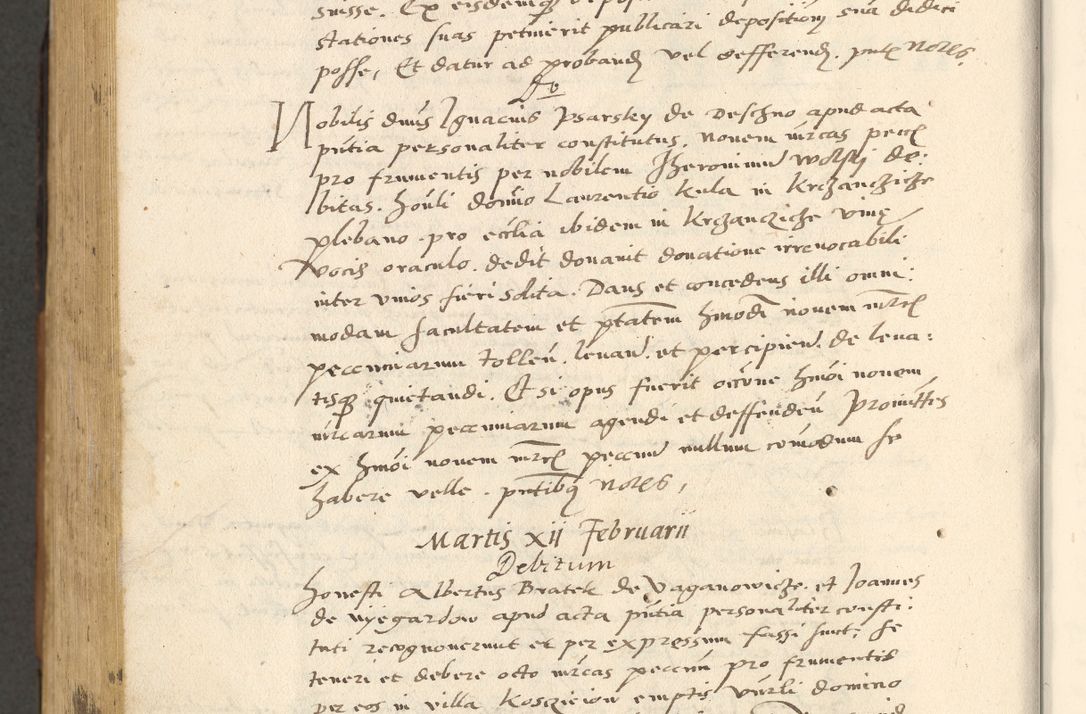 suisse. Ex eisdemq̃ deposi
stationes suas petierit publicari depositioñ suã didici
posse, Et datur ad probanđ vel defferenđ. pñt Notẽs.
Nobilis dñus Ignacius Psarsky de Deschno apud acta
pñtia personaliter constitutus, novem mrcas pecc̃
pro frumentis per nobilem Iheronimũ Wolskj de:
bitas. honli domĩo Laurentio Kula in Krczanczicze
plebano pro ecclĩa ibidem in Krczanczicze vine
vocis oraculo. dedit donavit donatione irrevocabili
inter vivos fieri solita. Dans et concedens illi omni:
modam facultatem et ptãtem hmõdi novem mrc̃
pecuniarum tollen̄. levand̄. et percipien̄d. de leva:
tisq̃ quietandi. Et si opus fuerit occõne hmõi novem
mrcarum pecuniarum agendi et deffenden̄ Promittẽs
ex hmõi novem mrc̃ peccun̄ nullum comõdum se
habere velle. pñtibq̃ Notẽs,
Martis xii Februarii
Debitum
Honesti Albertus Bratek de Vaganowicze. et Joannes
de Wyegardow apud acta pñtia personaliter consti:
tuti recognoverunt et per expressum fassi sunt; se
teneri et debere octo mrcas peccun̄ pro frumentis
per eos in villa Kosczieiow emptis vñrli domino